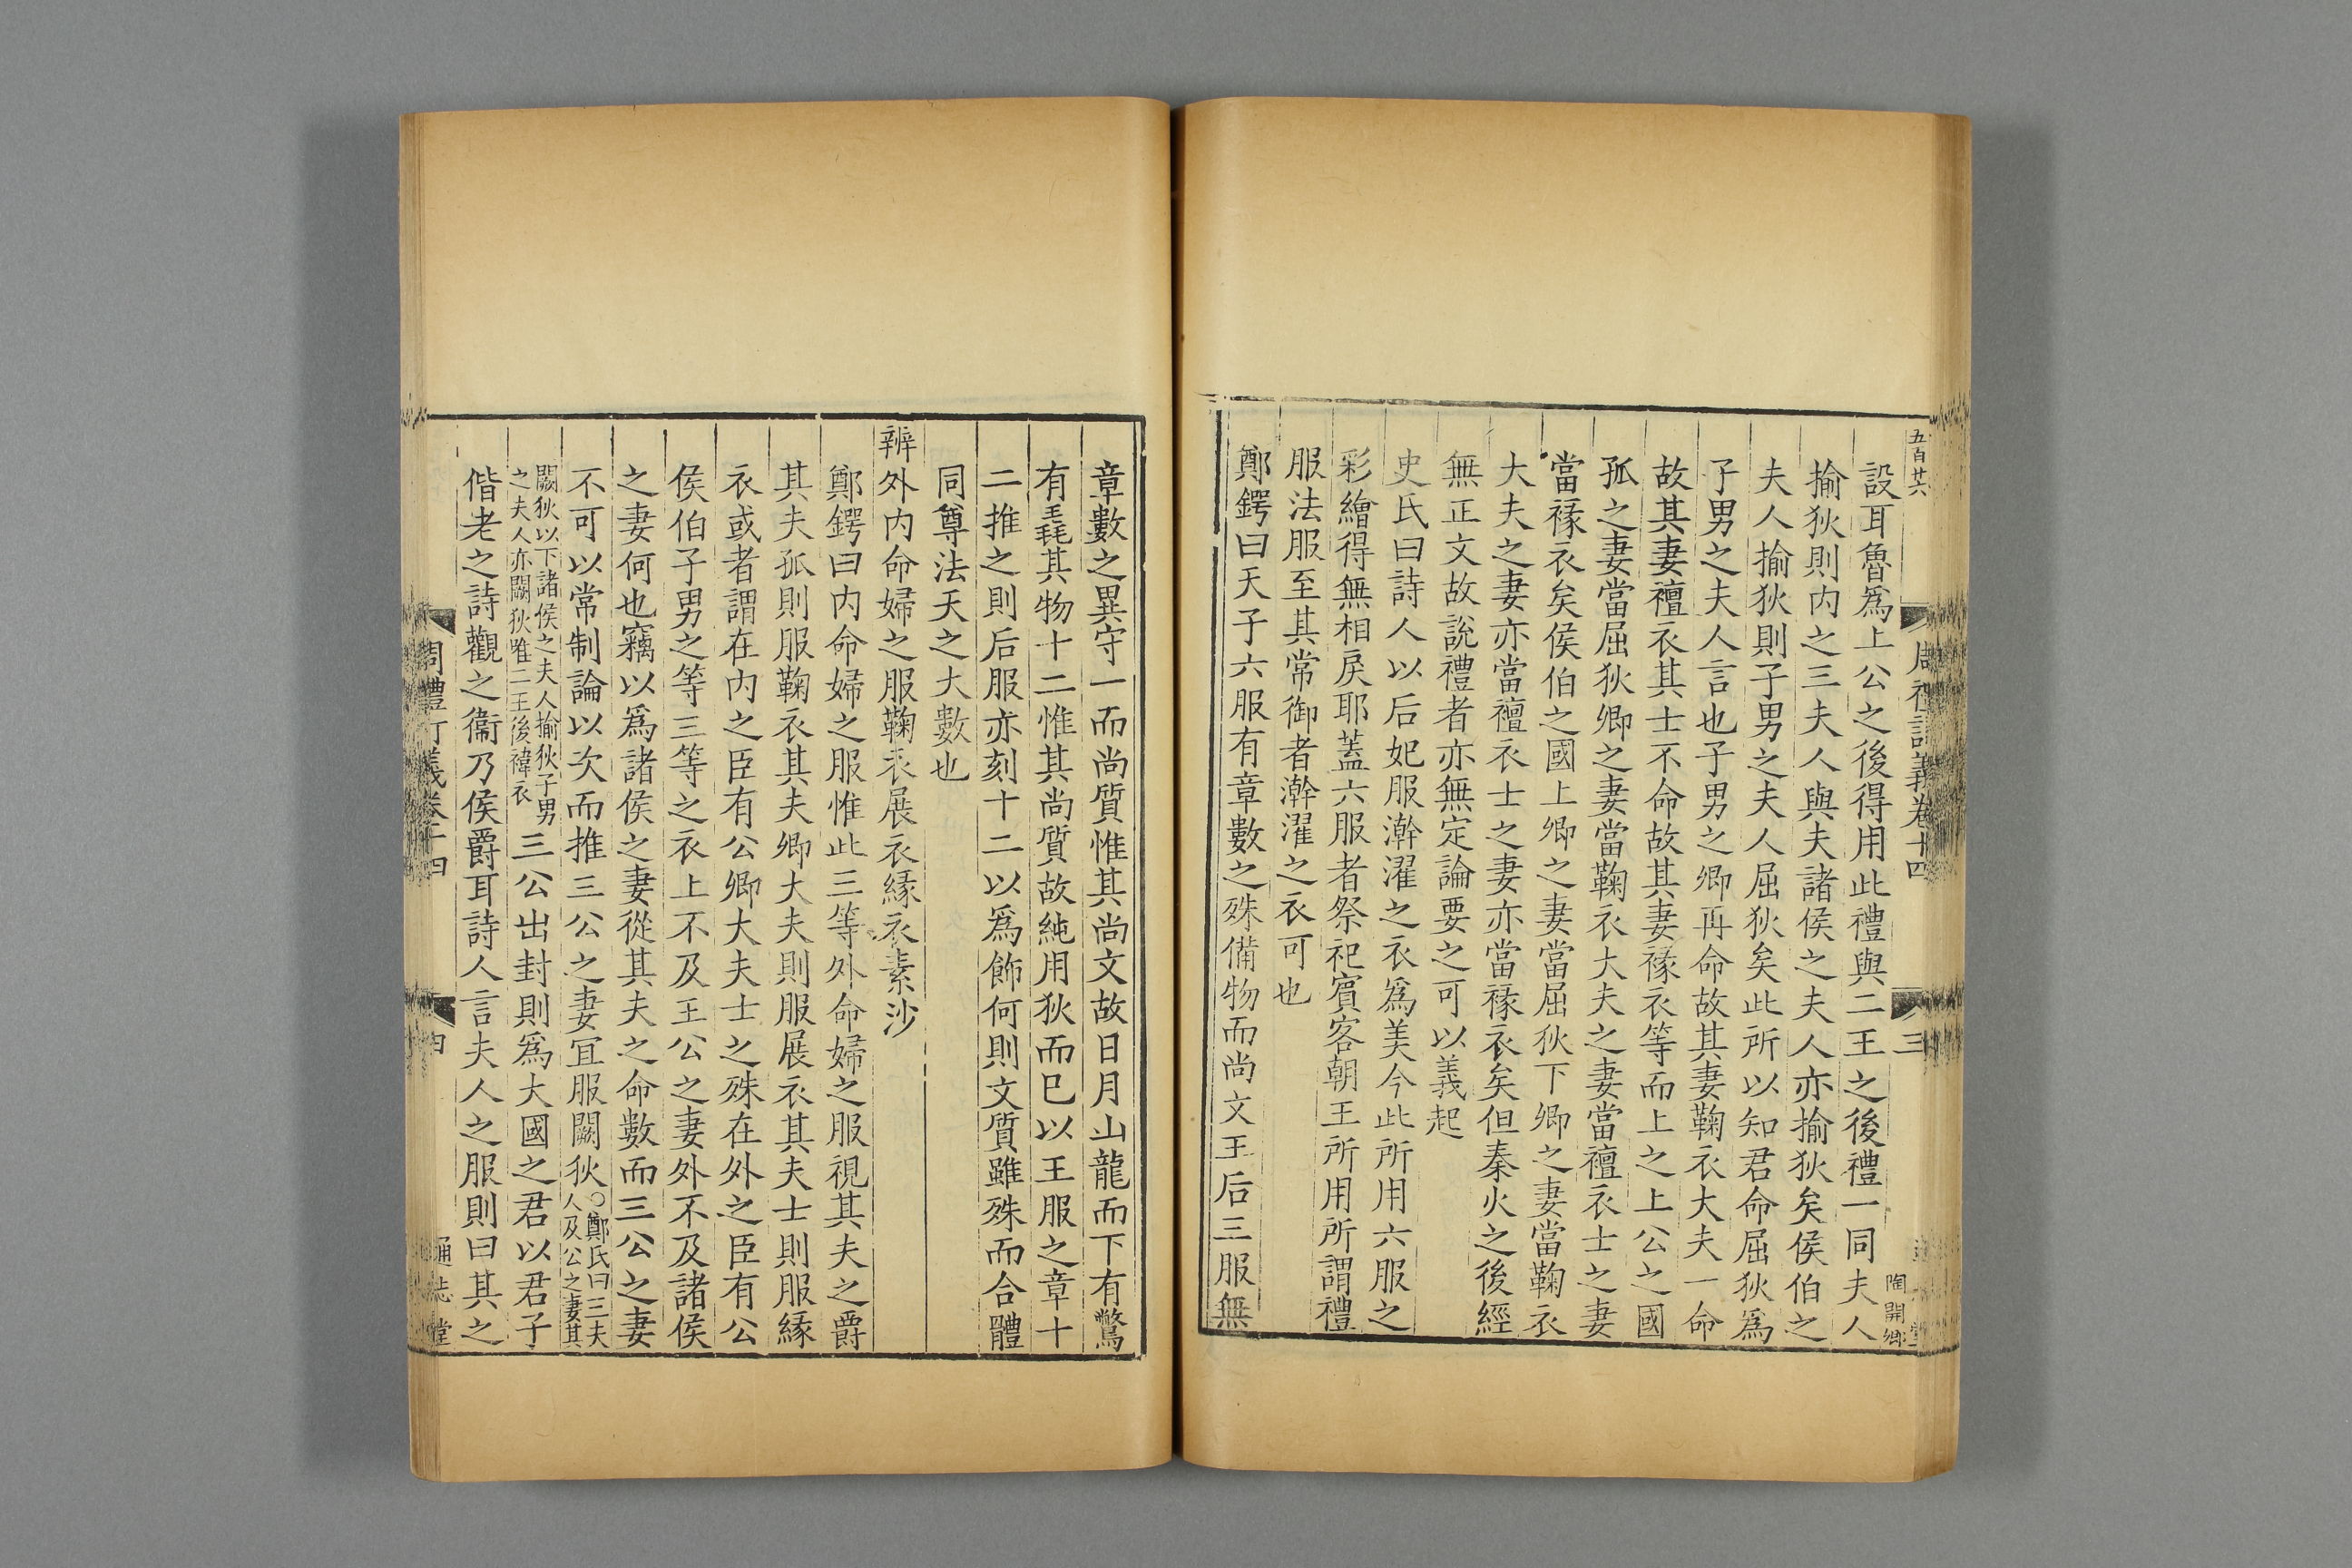 五百廿六
周禮訂義卷十四
三
陶開卿
設耳魯爲上公之後得用此禮與二王之後禮一同夫人
揄狄則内之三夫人與夫諸侯之夫人亦揄狄矣侯伯之
夫人揄狄則子男之夫人屈狄矣此所以知君命屈狄爲
子男之夫人言也子男之卿再命故其妻鞠衣大夫一命
故其妻襢衣其士不命故其妻褖衣等而上之上公之國
孤之妻當屈狄卿之妻當鞠衣大夫之妻當襢衣士之妻
當褖衣矣侯伯之國上卿之妻當屈狄下卿之妻當鞠衣
大夫之妻亦當襢衣士之妻亦當褖衣矣但秦火之後經
無正文故說禮者亦無定論要之可以義起
史氏曰詩人以后妃服澣濯之衣爲美今此所用六服之
彩繪得無相戾耶蓋六服者祭祀賓客朝王所用所謂禮
服法服至其常御者澣濯之衣可也
鄭鍔曰天子六服有章數之殊備物而尚文王后三服無
章數之異守一而尚質惟其尚文故日月山龍而下有鷩
有毳其物十二惟其尚質故純用狄而已以王服之章十
二推之則后服亦刻十二以爲飾何則文質雖殊而合體
同尊法天之大數也
辨外内命婦之服鞠衣展衣緣衣素沙
鄭鍔曰内命婦之服惟此三等外命婦之服視其夫之爵
其夫孤則服鞠衣其夫卿大夫則服展衣其夫士則服緣
衣或者謂在内之臣有公卿大夫士之殊在外之臣有公
侯伯子男之等三等之衣上不及王公之妻外不及諸侯
之妻何也竊以爲諸侯之妻從其夫之命數而三公之妻
不可以常制論以次而推三公之妻宜服闕狄○鄭氏曰三夫人及公之妻其
闕狄以下諸侯之夫人揄狄子男之夫人亦闕狄唯二王後褘衣三公出封則爲大國之君以君子
偕老之詩觀之衞乃侯爵耳詩人言夫人之服則曰其之
周禮訂義卷十四
四
通志堂